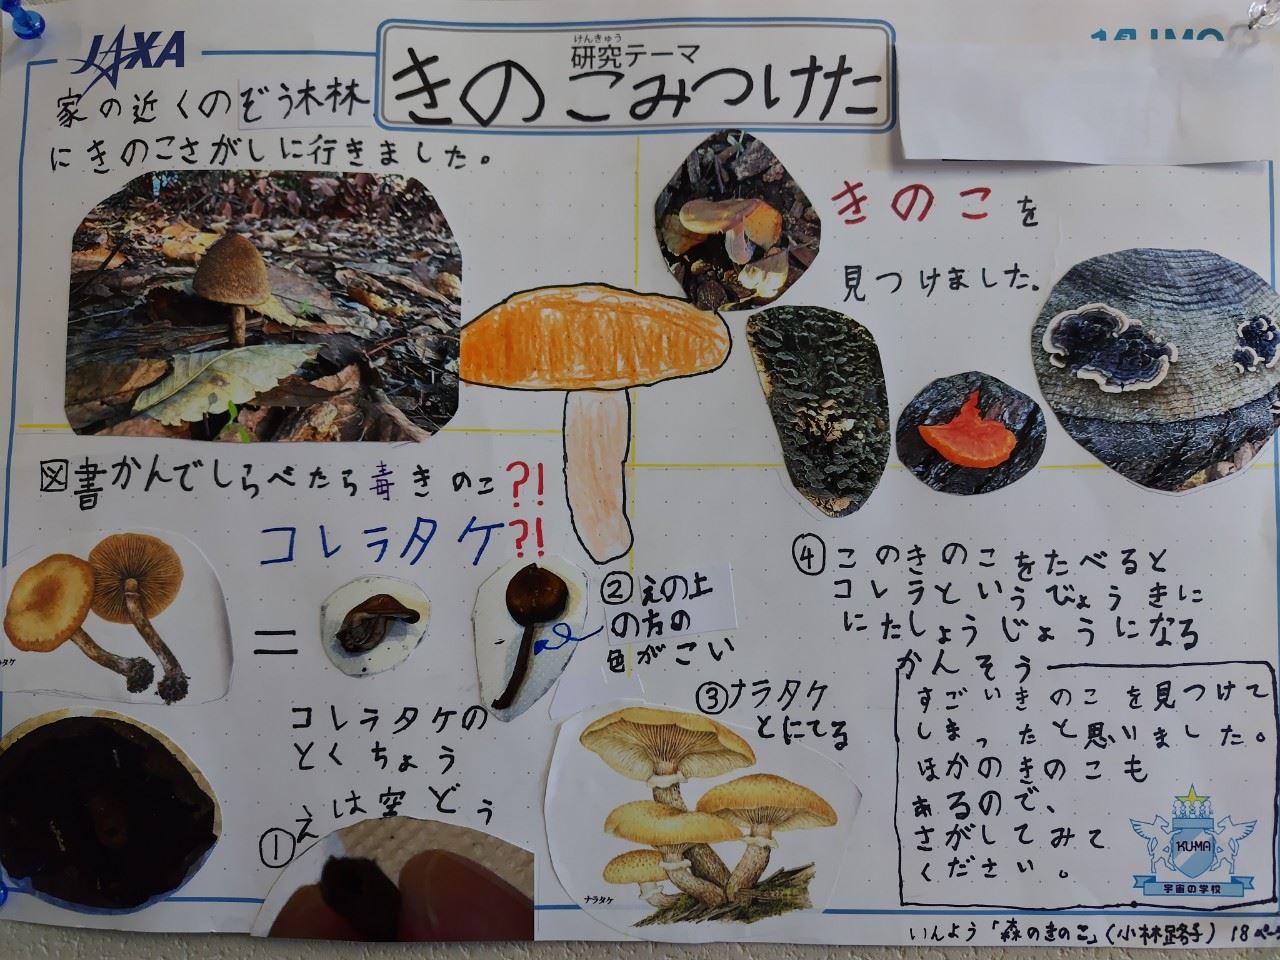 JAXA
けんきゅう
研究テーマ
きのこみつけた
家の近くのぞう木林
にきのこさがしに行きました。
きのこを
見つけました。
図書かんでしらべたら毒きのこ?!
コレラタケ?!
=
コレラタケの
とくちょう
①えは空どう
②えの上
の方の
色がこい
③ナラタケ
とにてる
ナラタケ
④このきのこをたべると
コレラというびょうきに
にたしょうじょうになる
かんそう
すごいきのこを見つけて
しまったと思いました。
ほかのきのこも
あるので、
さがしてみて
ください。
KUMA
宇宙の学校
いんよう「森のきのこ」(小林路子) 18ページ